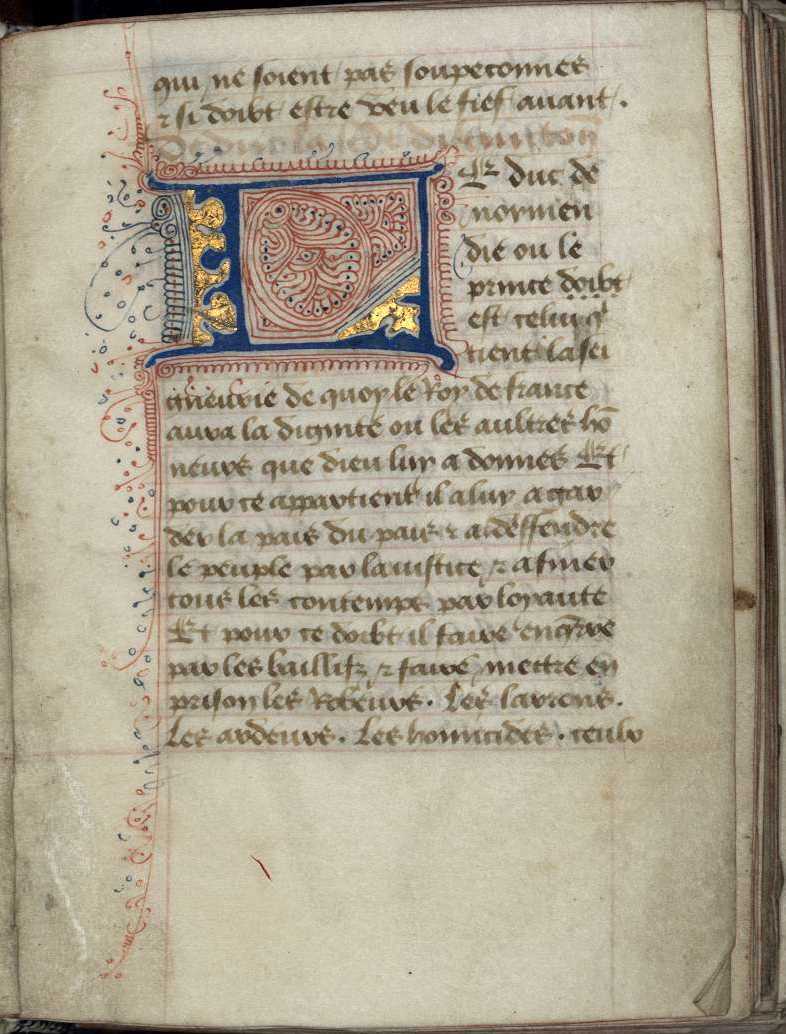 qui ne soient pas soupeconnes
⁊ si doibt estre veu le fief auant.
Le duc de
normen
die ou le
prince doibt
est celuy qͥ
tient la sei
gneurie de quoy le Roy de france
aura la dignite ou les aultres hō
neurs que dieu luy a donnes Et
pour ce appartient il a luy a gar
der la pais du pais ⁊ a deffendre
le peuple par la iustice ⁊ a finer
tous les contemps par loyaute
Et pour ce doibt il faire enq̄rre
par les baillifz ⁊ faire mettre en
prison les Robeurs. Les larrons.
Les ardeurs. Les homicides. ceulx